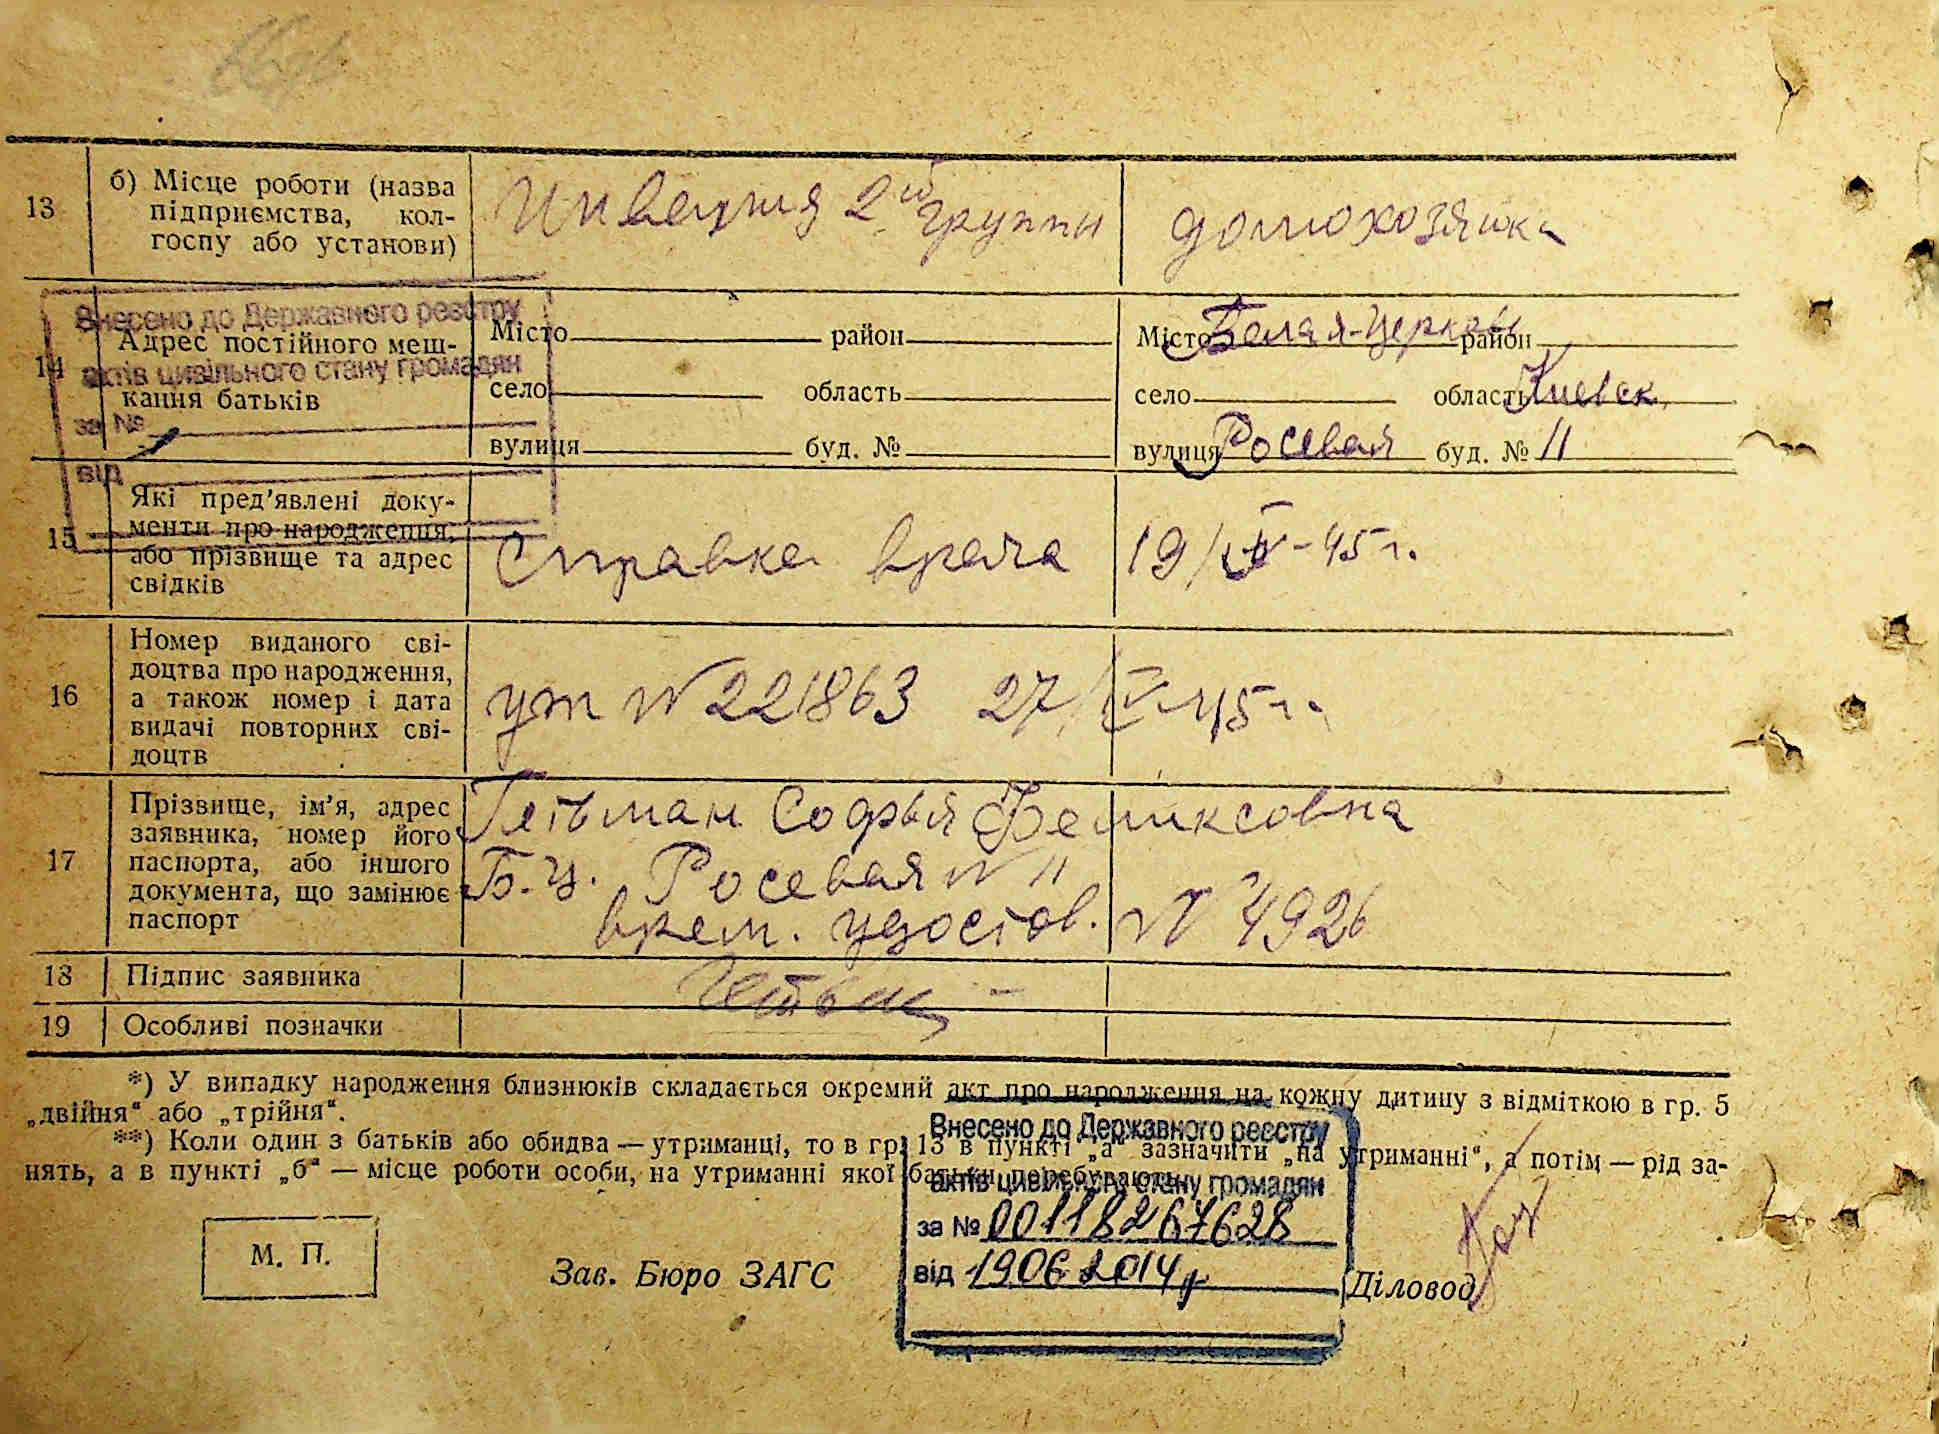 13
б) Місце роботи (назва
підприємства, кол-
госпу або установи)
Инвалид 2ой группы
домохозяйка
Внесено до Державного реєстру
актів цивільного стану громадян
за №
від
14
Адрес постійного меш-
кання батьків
Місто район
село область
вулиця буд. №
Місто Белая-Церковь район
село область Киевск.
вулиця Росевая буд. № 11
15
Які пред'явлені доку-
менти про народження,
або прізвище та адрес
свідків
Справка врача 19/IV-45 г.
16
Номер виданого сві-
доцтва про народження,
а також номер і дата
видачі повторних сві-
доцтв
ут № 221863 27/IV-45 г.
17
Прізвище, ім'я, адрес
заявника, номер його
паспорта, або іншого
документа, що замінює
паспорт
Гетьман Софья Феликсовна
Б.Ц. Росевая № 11
врем. удостов. № 4926
18
Підпис заявника
Гетьман
19
Особливі позначки
*) У випадку народження близнюків складається окремий акт про народження на кожну дитину з відміткою в гр. 5
„двійня“ або „трійня“.
**) Коли один з батьків або обидва — утриманці, то в гр. 13 в пункті „а“ зазначити „на утриманні“, а потім — рід за-
нять, а в пункті „б“ — місце роботи особи, на утриманні якої батьки перебувають.
Внесено до Державного реєстру
актів цивільного стану громадян
за № 00118267628
від 19.06.2014 р
М. П.
Зав. Бюро ЗАГС
Діловод